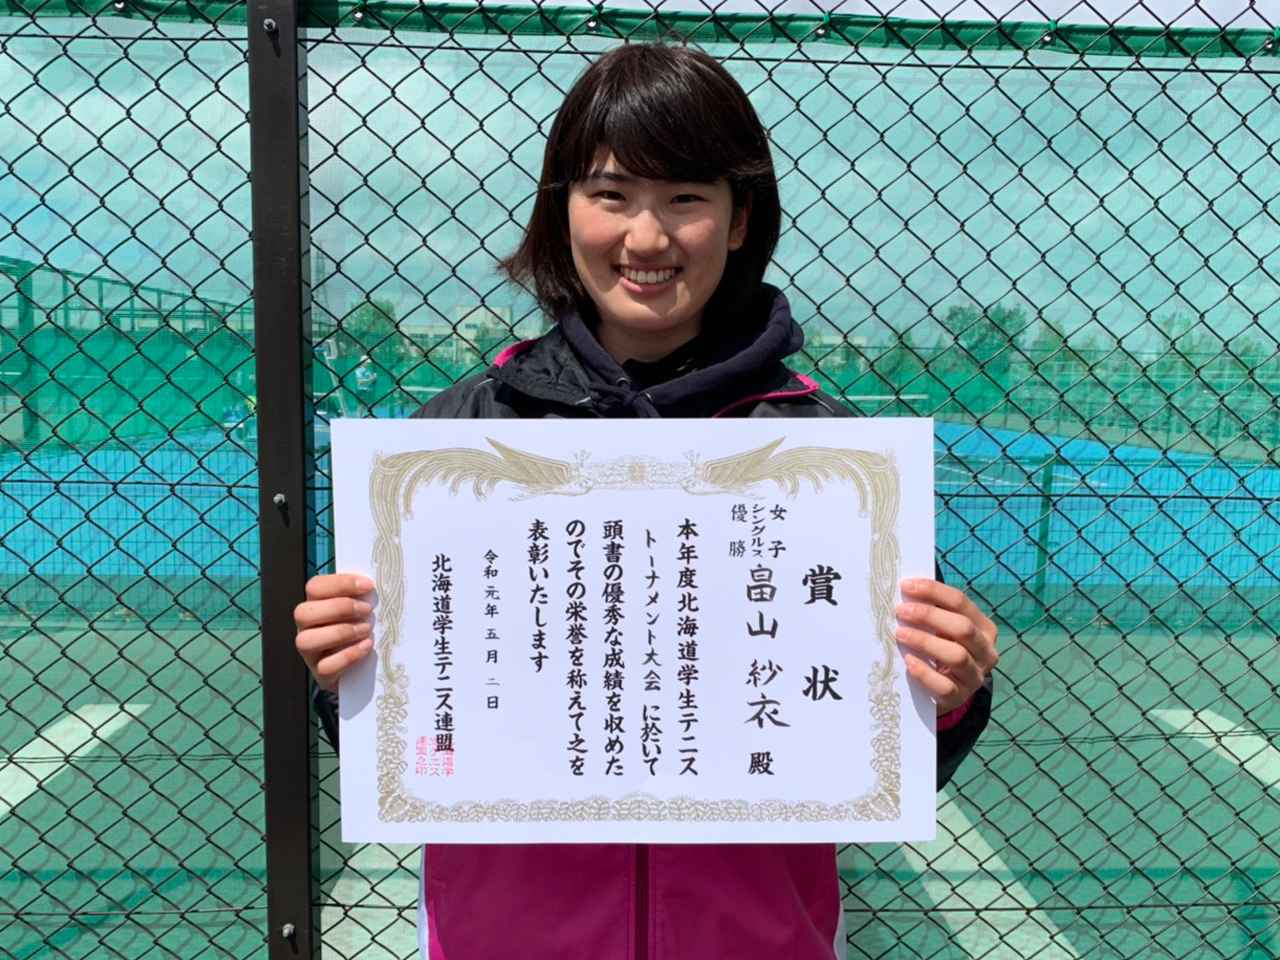 賞状
女子
シングルス
優勝
畠山紗衣殿
本年度北海道学生テニス
トーナメント大会に於いて
頭書の優秀な成績を収めた
のでその栄誉を称えて之を
表彰いたします
令和元年五月二日
北海道学生テニス連盟